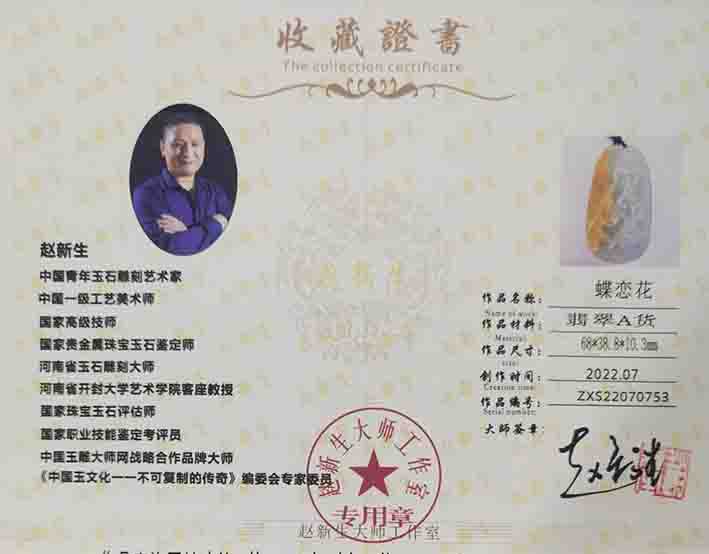 收藏證書
The collection certificate
赵新生
中国青年玉石雕刻艺术家
中国一级工艺美术师
国家高级技师
国家贵金属珠宝玉石鉴定师
河南省玉石雕刻大师
河南省开封大学艺术学院客座教授
国家珠宝玉石评估师
国家职业技能鉴定考评员
中国玉雕大师网战略合作品牌大师
《中国玉文化一一不可复制的传奇》编委会专家委员
作品名称： 蝶恋花
Name of work:
作品材料： 翡翠A货
Material:
作品尺寸： 68*38.8*10.3mm
size:
创作时间： 2022.07
Creation time:
作品编号： ZXS22070753
Serial number:
大师签章：
赵新生大师工作室
专用章
赵新生大师工作室